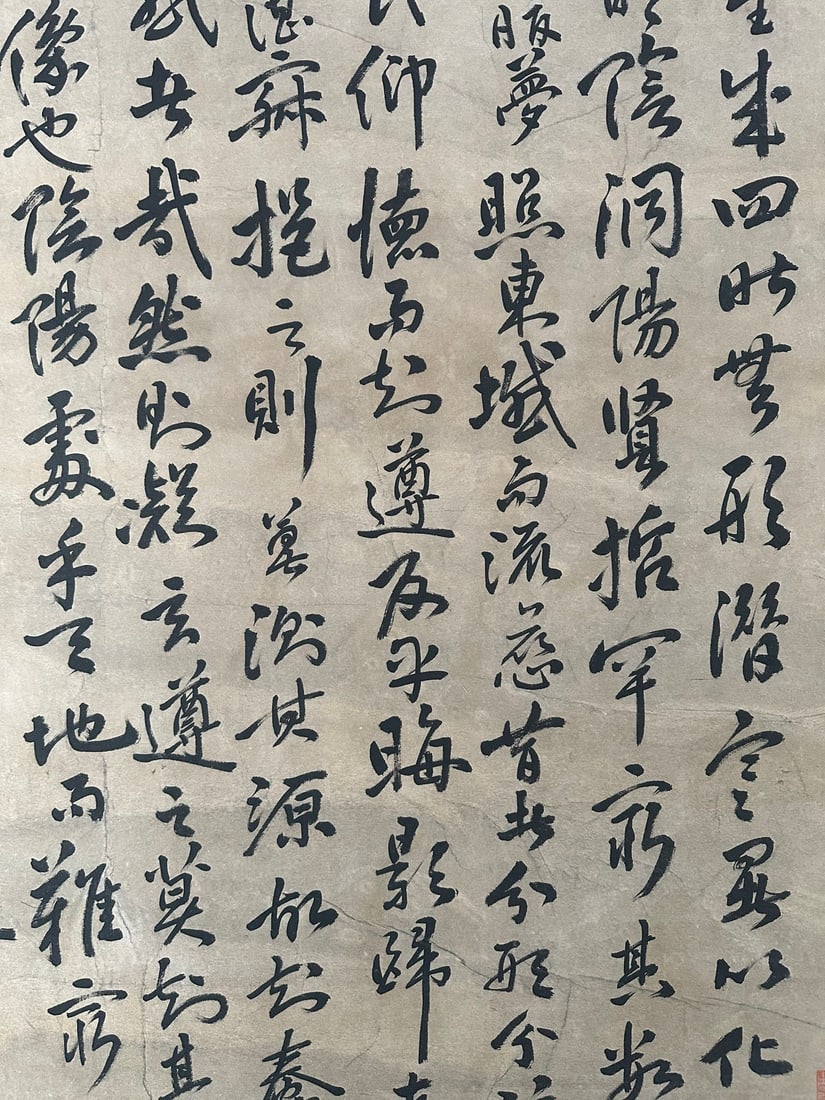 成四時無形潛寒暑以化
陰洞陽賢哲罕窮其數
夢照東域而流慈昔者分形分
仰德而知遵及乎晦影歸
湛寂挹之則莫測其源故知蠢
者哉然則凝玄遵之莫知其
像也陰陽處乎天地而難窮